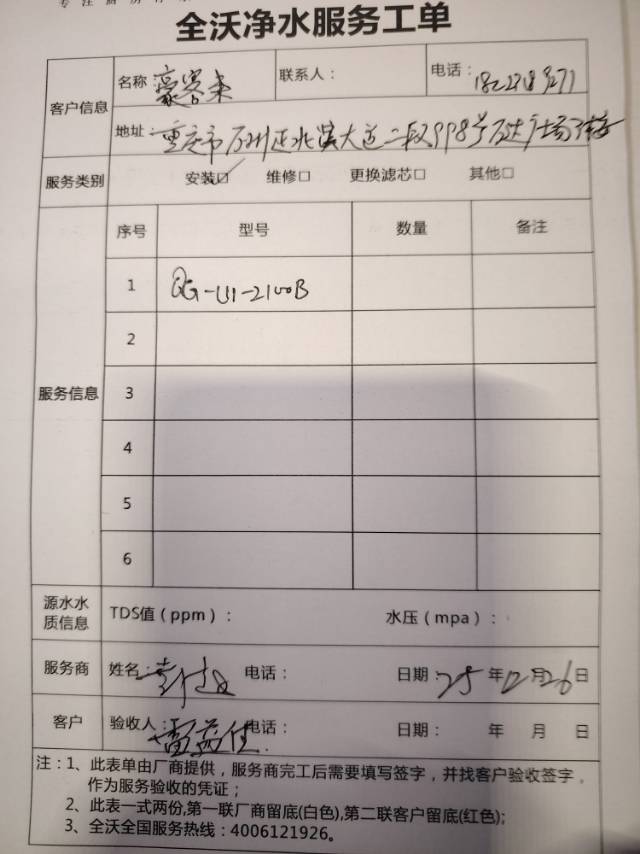 全沃净水服务工单
客户信息 名称：豪客来 联系人： 电话：
地址：重庆市万州区北滨大道二段998号万达广场
服务类别 安装☑ 维修□ 更换滤芯□ 其他□
服务信息 序号 型号 数量 备注
1 QG-U1-2100B
2
3
4
5
6
源水水质信息 TDS值（ppm）： 水压（mpa）：
服务商 姓名： 电话： 日期：25年12月26日
客户 验收人：雷益佳 电话： 日期： 年 月 日
注：1、此表单由厂商提供，服务商完工后需要填写签字，并找客户验收签字，
作为服务验收的凭证；
2、此表一式两份,第一联厂商留底(白色),第二联客户留底(红色);
3、全沃全国服务热线：4006121926。